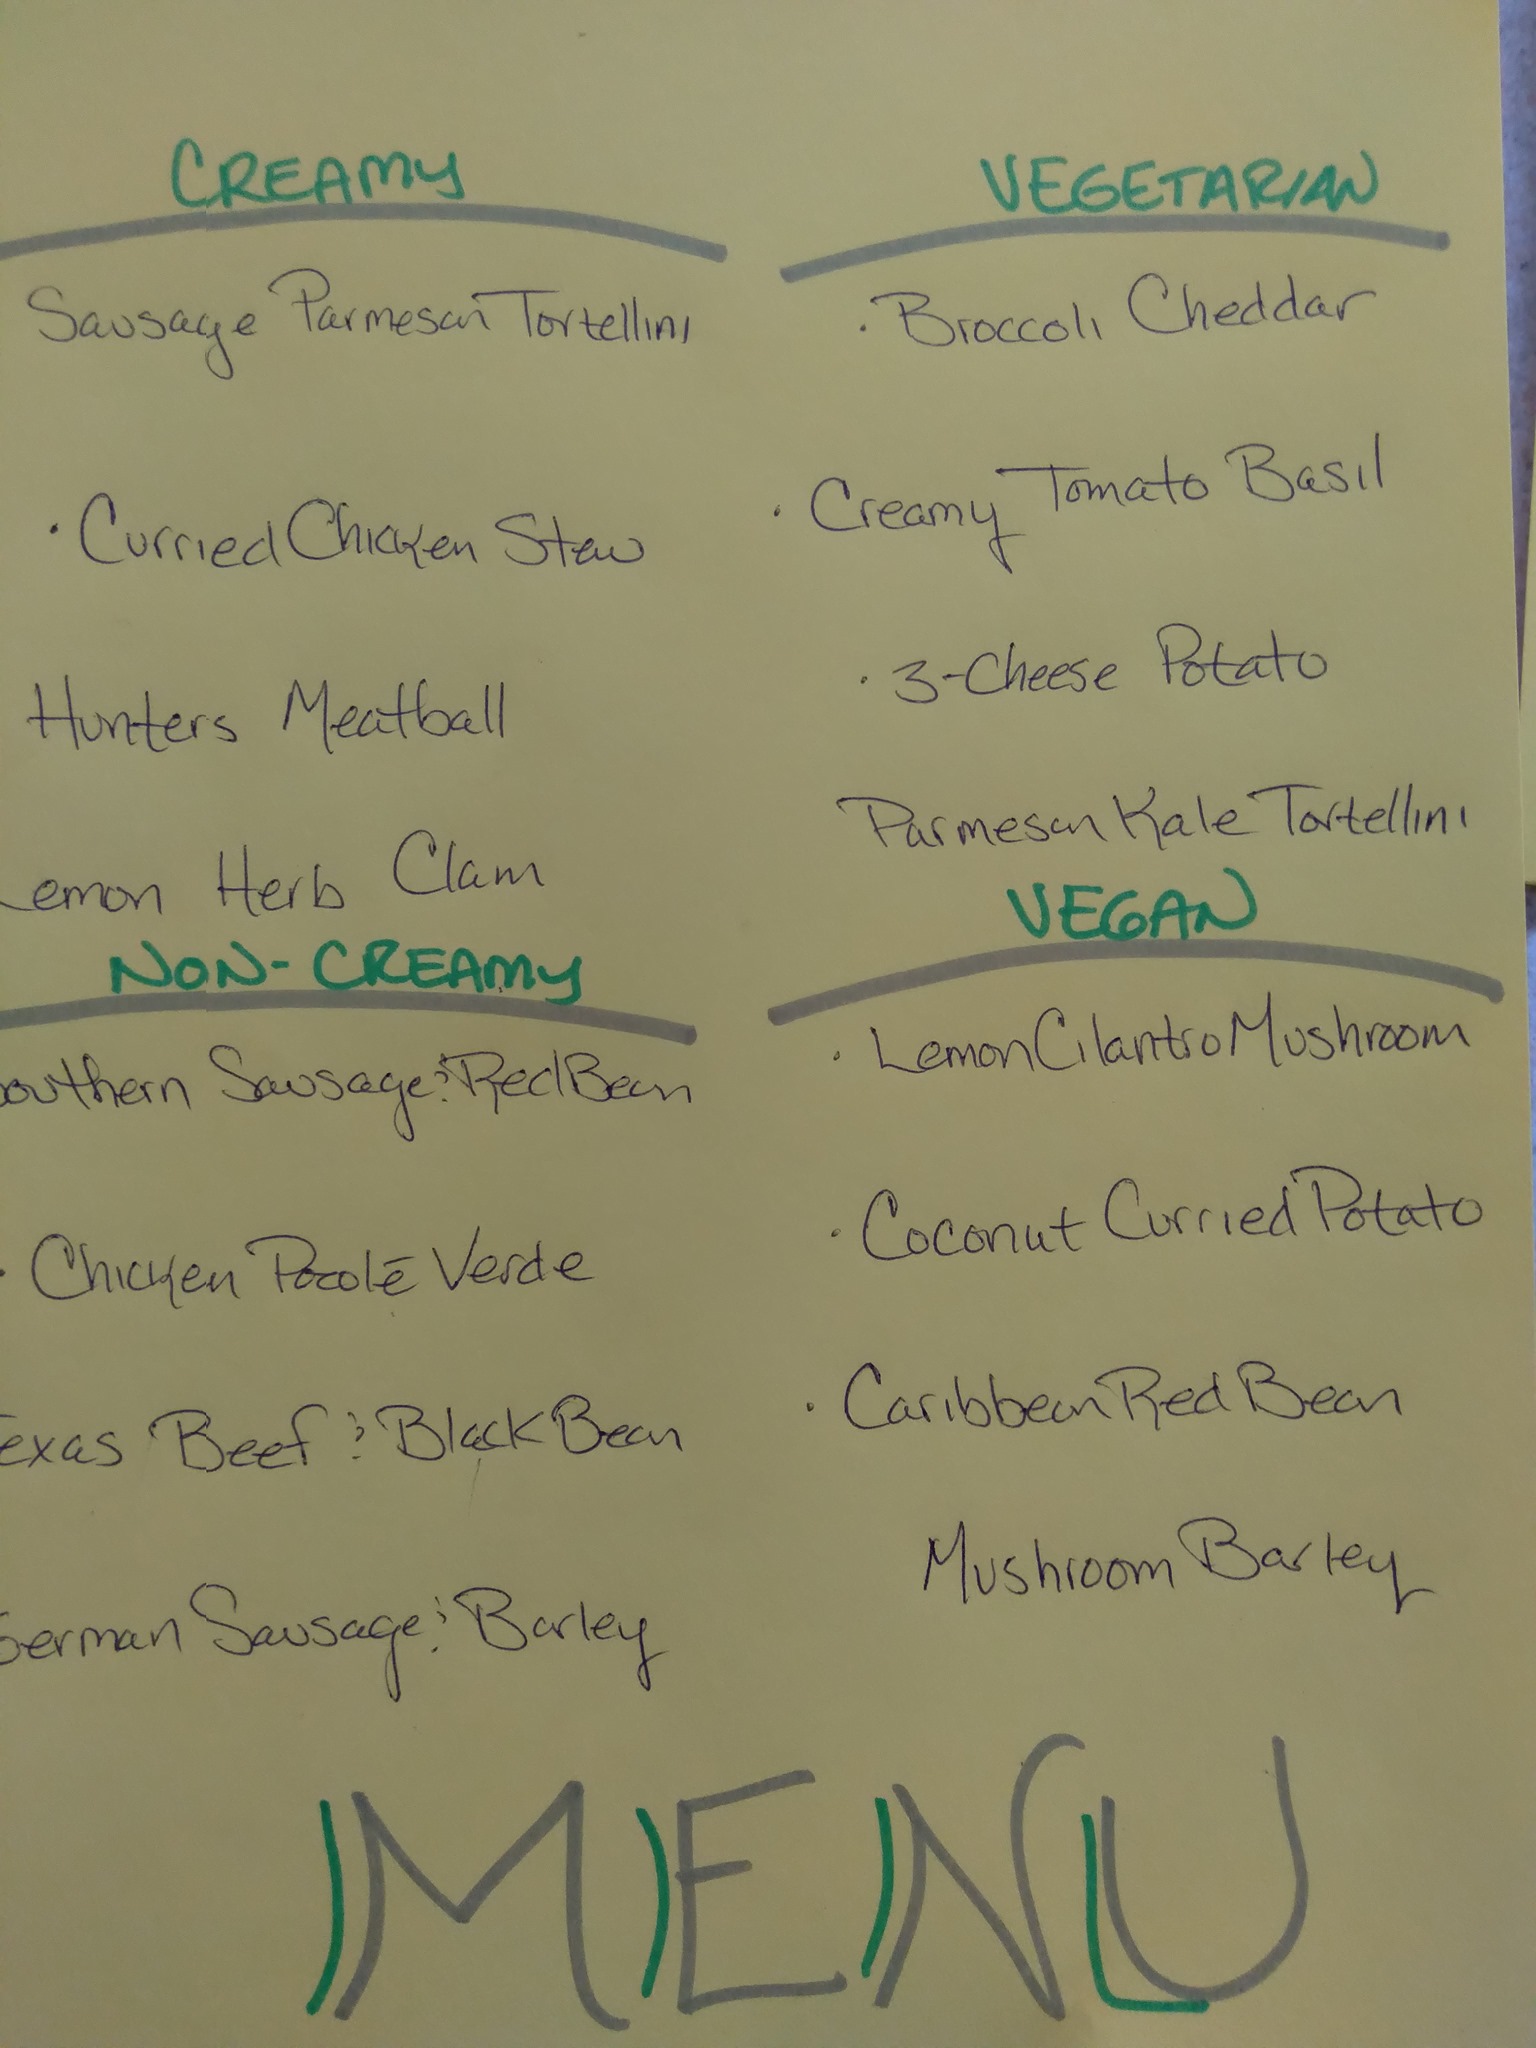 CREAMY
Sausage Parmesan Tortellini
· Curried Chicken Stew
Hunters Meatball
Lemon Herb Clam
NON-CREAMY
outhern Sausage & Red Bean
· Chicken Pozolé Verde
exas Beef & Black Bean
German Sausage & Barley
VEGETARIAN
· Broccoli Cheddar
· Creamy Tomato Basil
· 3-Cheese Potato
Parmesan Kale Tortellini
VEGAN
· Lemon Cilantro Mushroom
· Coconut Curried Potato
· Caribbean Red Bean
Mushroom Barley
MENU